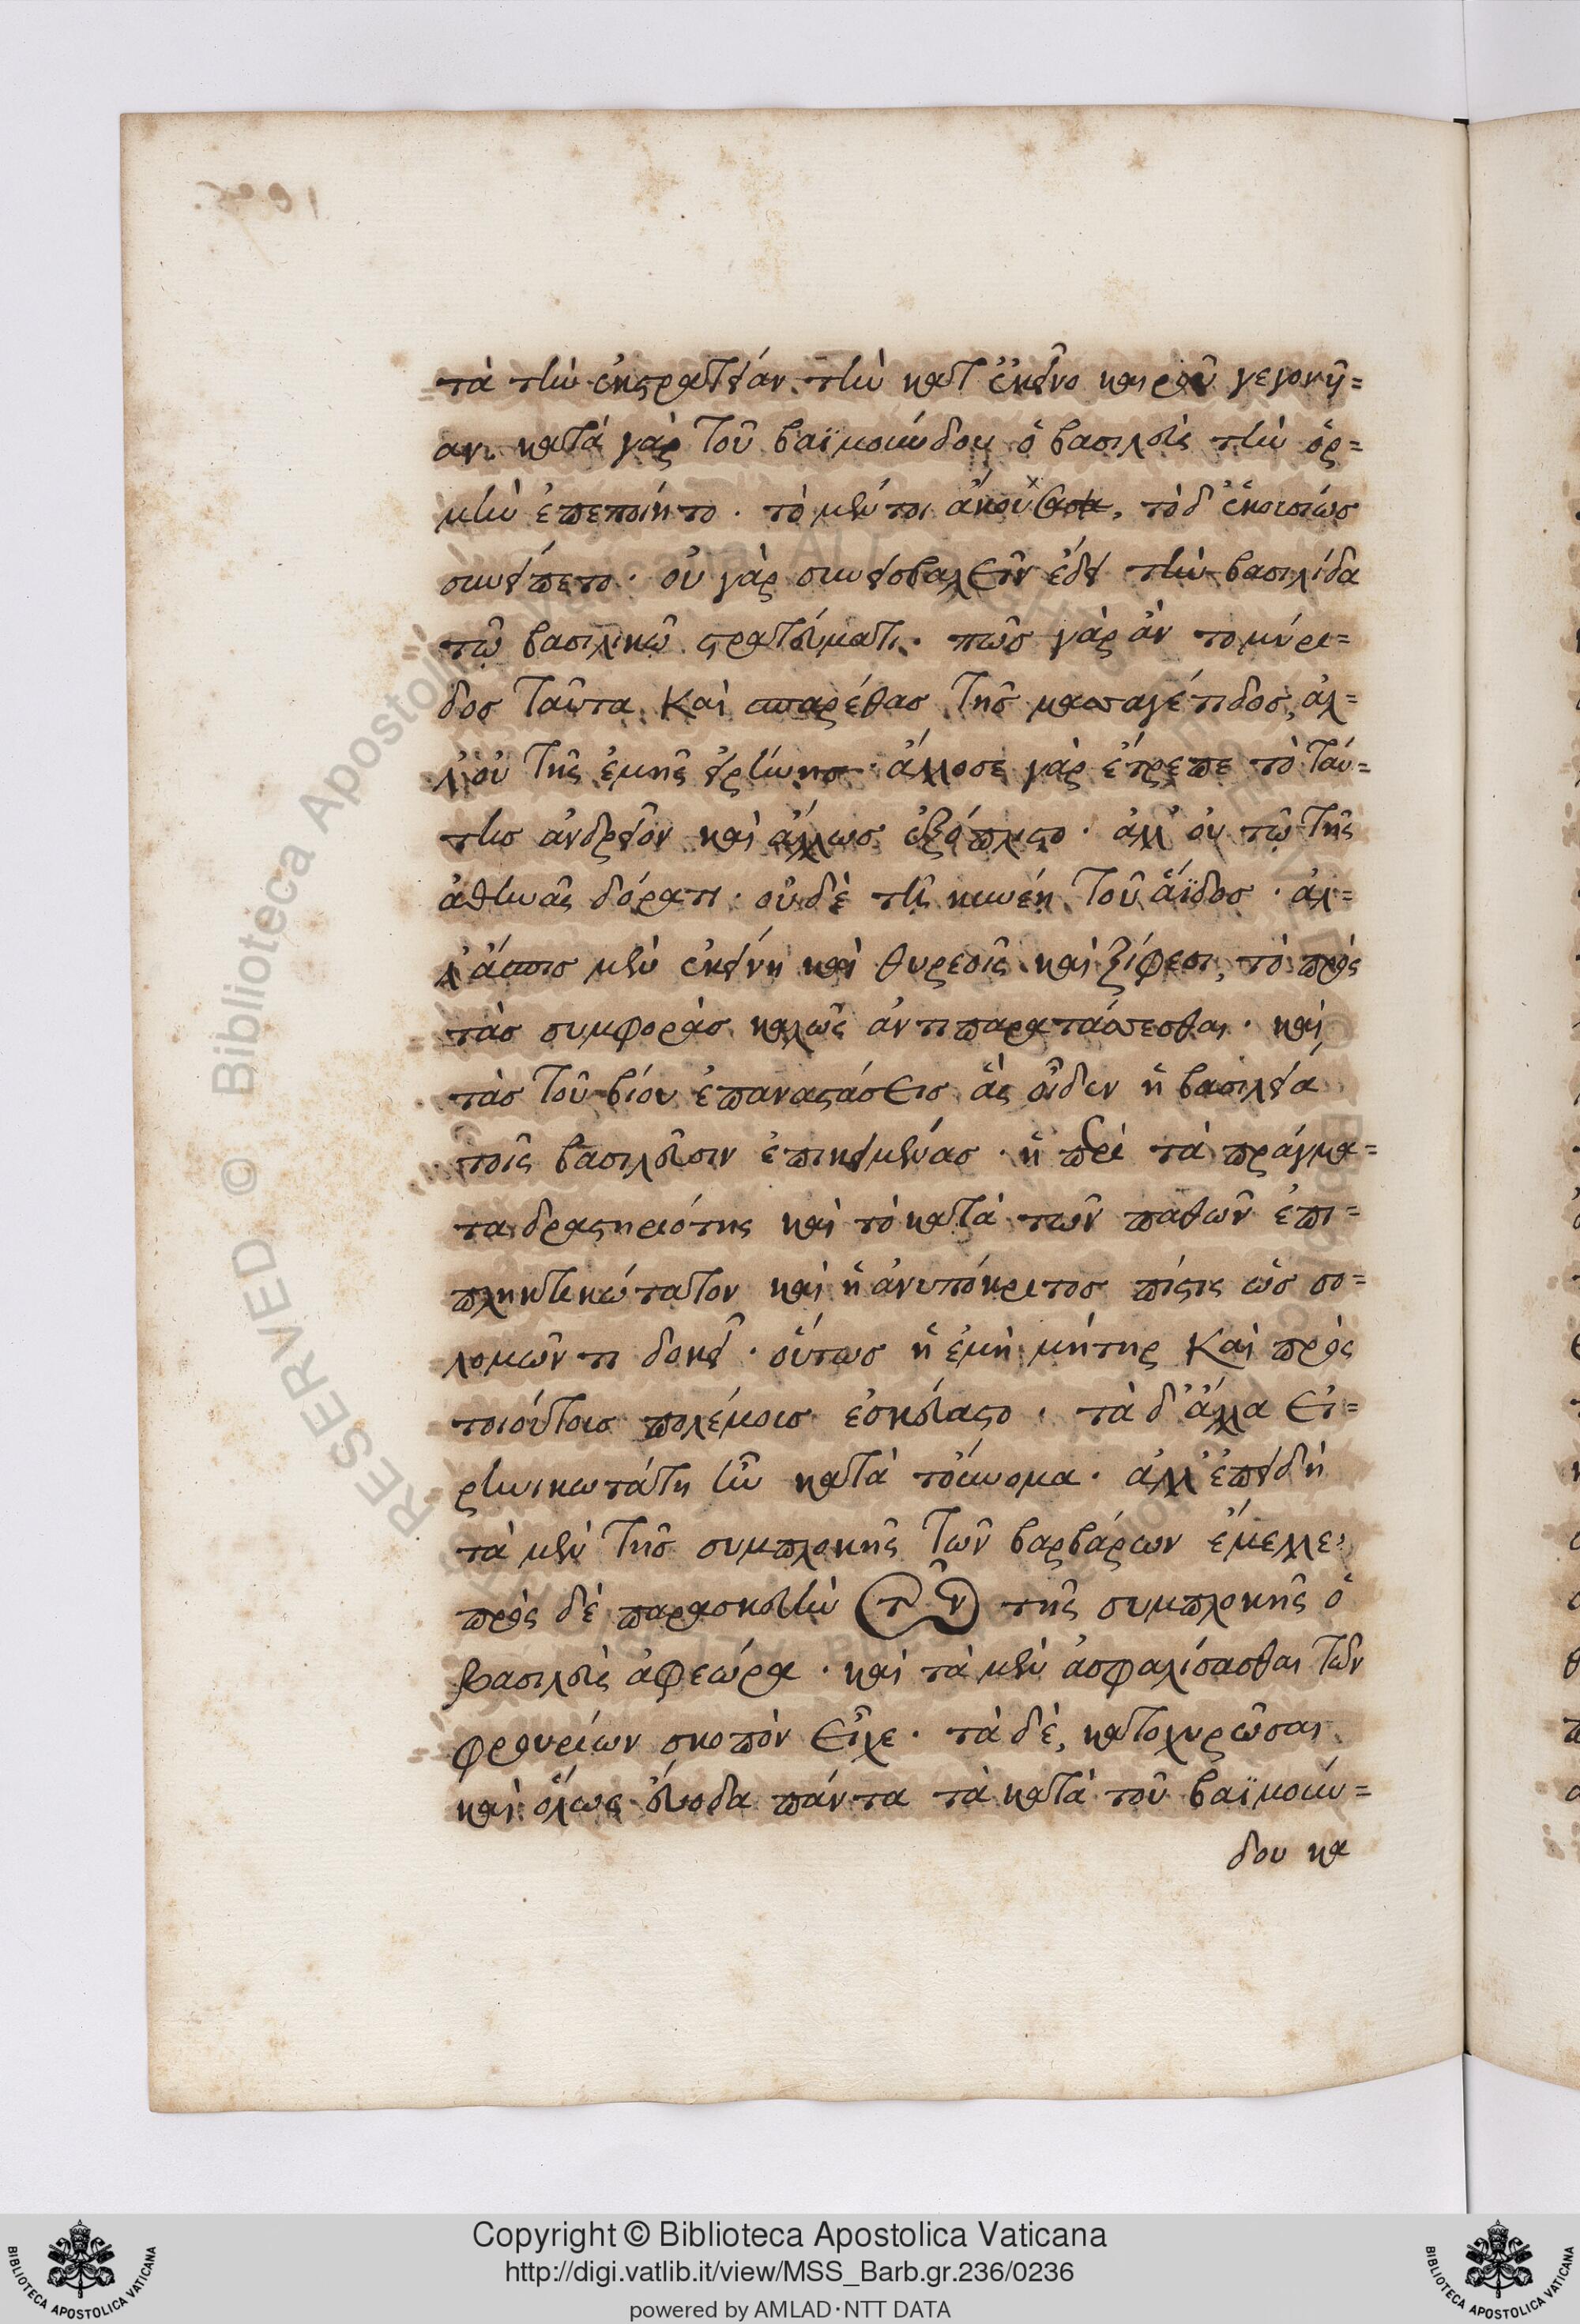 τὰ τὴν ἐκστρατείαν τὴν κατ' ἐκεῖνο καιροῦ γεγονῆ=
αν. κατὰ γὰρ τοῦ βαϊμούνδου ὁ βασιλεὺς τὴν ὁρ=
μὴν ἐπεποίητο. τὸ μέντοι ἀκου, τὸ δ' ἑκουσίως
συνείπετο. οὐ γὰρ συνεισβαλεῖν ἔδει τὴν βασιλίδα
τῷ βασιλικῷ στρατεύματι. πῶς γὰρ ἂν τομύρι=
δος ταῦτα καὶ σπαρέθας τῆς μασσαγέτιδος, ἀλ=
λ' οὐ τῆς ἐμῆς εἰρήνης. ἄλλοσε γὰρ ἔτρεπε τὸ ταύ=
της ἀνδρεῖον καὶ ἄλλως ἐξόπλιστο. ἀλλ' οὐ τῷ τῆς
ἀθηνᾶς δόρατι. οὐδὲ τῇ κυνέῃ τοῦ ἅϊδος. ἀλ=
λ' ἀσπὶς μὲν ἐκείνη καὶ θυρεοῖς καὶ ξίφεσι, τὸ πρὸς
τὰς συμφορὰς καλῶς ἀντιπαρατάσσεσθαι. καὶ
τὰς τοῦ βίου ἐπαναστάσεις ἃς οἶδεν ἡ βασιλεία
τοῖς βασιλεῦσιν ἐπικειμένας. ἡ περὶ τὰ πράγμα=
τα δραστηριότης καὶ τὸ κατὰ τῶν παθῶν ἐπι=
πληκτικώτατον καὶ ἡ ἀνυπόκριτος πίστις ὡς σο=
λομῶντι δοκεῖ. οὕτως ἡ ἐμὴ μήτηρ καὶ πρὸς
τοιούτοις πολέμοις ἐσκεύαστο. τὰ δ' ἄλλα εἰ=
ρηνικωτάτη ἦν κατὰ τοὔνομα. ἀλλ' ἐπειδὴ
τὰ μὲν τῆς συμπλοκῆς τῶν βαρβάρων ἔμελλε,
πρὸς δὲ παρασκευὴν (τ ν) τῆς συμπλοκῆς ὁ
βασιλεὺς ἀφεώρα. καὶ τὰ μὲν ἀσφαλίσασθαι τῶν
φρουρίων σκοπὸν εἶχε. τὰ δὲ, κατοχυρῶσαι
καὶ ὅλως εὔοδα πάντα τὰ κατὰ τοῦ βαϊμούν=
δου κα
Copyright © Biblioteca Apostolica Vaticana
http://digi.vatlib.it/view/MSS_Barb.gr.236/0236
powered by AMLAD·NTT DATA